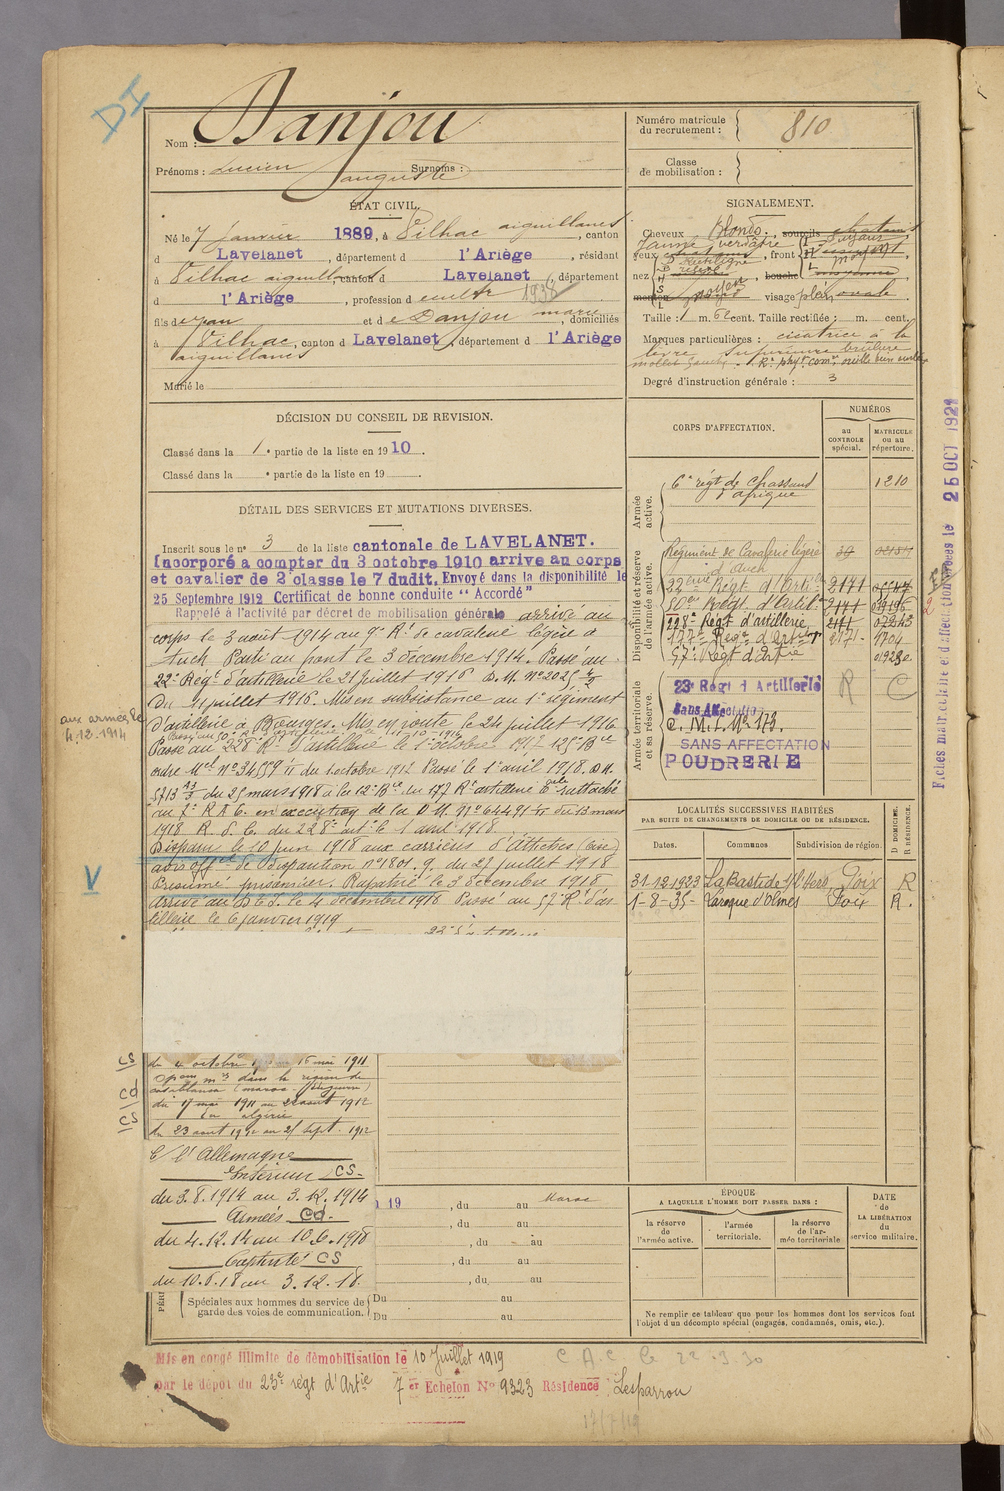 DI
Nom : Danjou
Prénoms : Lucien Auguste Surnoms :
Numéro matricule du recrutement : 810
Classe de mobilisation :
ÉTAT CIVIL.
Né le 7 janvier 1889, à Vilhac aiguillanes, canton
d Lavelanet, département d l'Ariège, résidant
à Vilhac aiguillanes, canton d Lavelanet département
d l'Ariège, profession d cultr 1938
fils de Jean et de Danjou marie, domiciliés
à Vilhac, canton d Lavelanet, département d l'Ariège
aiguillanes
Marié le
SIGNALEMENT.
Cheveux blonds, sourcils chatains
jaune verdâtre
yeux, front
nez rectiligne, bouche moyenne
menton, visage plein ovale
Taille : 1 m. 62 cent. Taille rectifiée : m. cent.
Marques particulières : cicatrice à la
lèvre supérieure brulure
mollet gauche
Degré d'instruction générale : 3
DÉCISION DU CONSEIL DE REVISION.
Classé dans la 1e partie de la liste en 1910.
Classé dans la e partie de la liste en 19
CORPS D'AFFECTATION.
NUMÉROS
au CONTROLE spécial.
MATRICULE ou au répertoire.
Armée active.
6e régt de Chasseurs d'afrique 1210
Disponibilité et réserve de l'armée active.
Régiment de Cavalerie légère d'auch 30
22ème Régt d'Artie 2171
50ème Régt d'Artie 2171
228e Régt d'artillerie 2171
177e Régt d'Artie 2171 1704
57e Régt d'Artie
Armée territoriale et sa réserve.
23e Régt d'Artillerie R C
Sans Affectation
C. M. I. No 173
SANS AFFECTATION
POUDRERIE
Fiches matriculaire et d'affectation créées le 25 OCT 1921
DÉTAIL DES SERVICES ET MUTATIONS DIVERSES.
Inscrit sous le no 3 de la liste cantonale de LAVELANET.
Incorporé a compter du 3 octobre 1910 arrive au corps
et cavalier de 2e classe le 7 dudit. Envoyé dans la disponibilité le
25 Septembre 1912 Certificat de bonne conduite "Accordé"
Rappelé à l'activité par décret de mobilisation générale arrivé au
corps le 3 août 1914 au 9e Rt de cavalerie légère à
Auch Parti au front le 3 décembre 1914. Passé au
22e Régt d'artillerie le 21 juillet 1916 D. M. no 2025
du 11 juillet 1916. Mis en subsistance au 1er régiment
d'artillerie à Bourges. Mis en route le 24 juillet 1916
aux armées le
4.12.1914
Passé au 228e Rt d'artillerie le 1er octobre 1917 125e Bie
ordre Mel no 34559 du 1 octobre 1917 Passé le 1er avril 1918. D.M.
5713 du 25 mars 1918 à la 12e Bie du 177 Rt artillerie rattaché
au 7e R A C. en exécution de la D M no 64491 du 13 mars
1918 R. d. C. du 228e art. le 1 avril 1918.
Disparu le 10 juin 1918 aux carrières d'Attiches (Oise)
avis offel de disparition no 1801. 9. du 21 juillet 1918
Présumé prisonnier. Rapatrié le 3 décembre 1918
V
arrivé au D C I. le 4 décembre 1918 Passé au 57e Rt d'ar
tillerie le 6 janvier 1919
LOCALITÉS SUCCESSIVES HABITÉES
PAR SUITE DE CHANGEMENTS DE DOMICILE OU DE RÉSIDENCE.
D DOMICILE. R RÉSIDENCE.
Dates. Communes Subdivision de région.
31-12-1923 La Bastide s/l'Hers Foix R
1-8-35- Laroque d'Olmes Foix R.
CS
du 4 octobre au 16 mai 1911
Cd
opons mres dans la région de
Casablanca (maroc)
du 17 mai 1911 au 22 aout 1912
CS
En algérie
du 23 aout 1912 au 25 sept. 1912
C/ l'Allemagne
Intérieur CS
du 3.8.1914 au 3.12.1914
Armées Cd
du 4.12.14 au 10.6.1918
Captivité CS
du 10.6.18 au 3.12.18.
19 , du au Maroc
, du au
, du au
, du au
, du au
Spéciales aux hommes du service de garde des voies de communication.
Du au
Du au
ÉPOQUE
A LAQUELLE L'HOMME DOIT PASSER DANS :
la réserve de l'armée active.
l'armée territoriale.
la réserve de l'armée territoriale
DATE de LA LIBÉRATION du service militaire.
Ne remplir ce tableau que pour les hommes dont les services font
l'objet d'un décompte spécial (engagés, condamnés, omis, etc.).
Mis en congé illimité de démobilisation le 10 Juillet 1919
C.A.C le 22.3.30
par le dépôt du 23e régt d'Artie 7er Echelon No 9323 Résidence : Lesparrou
17/7/19